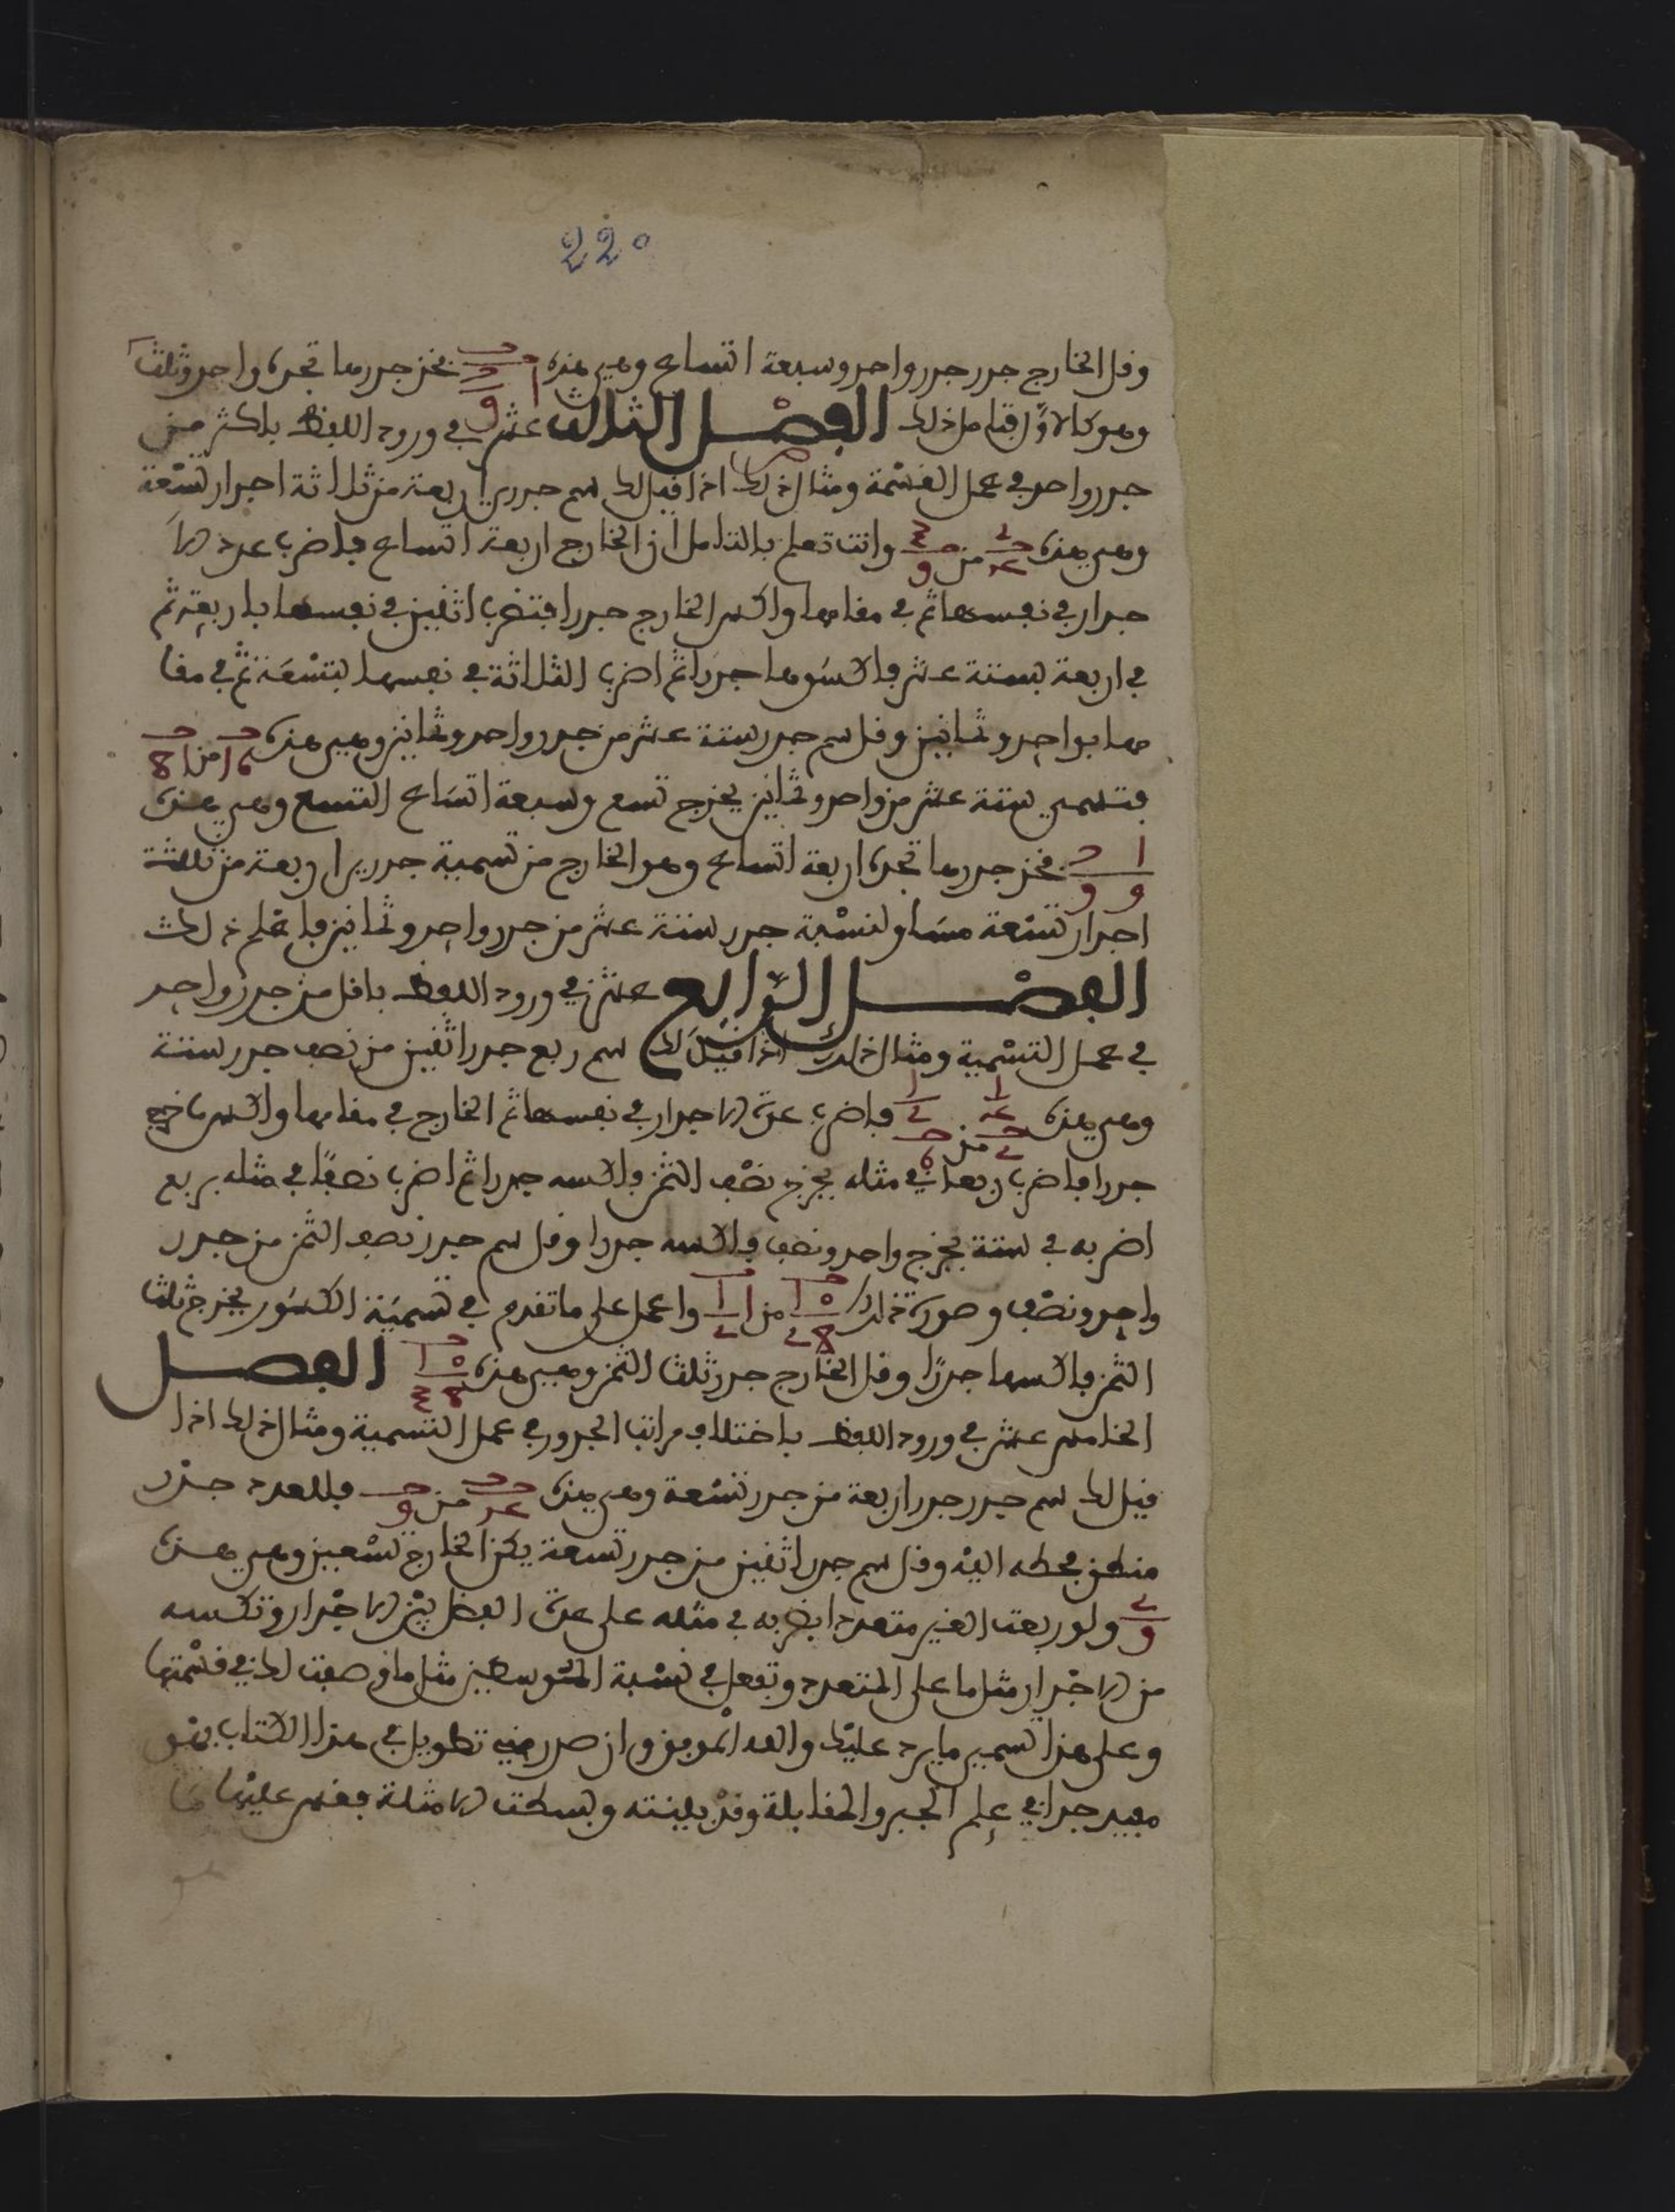 220
وقل الخارج جذر جذر واحد وسبعة اتساع وهي هذه فخذ جذرها تجده واحد وثلث
وهو كالاول فتامل ذلك الفصل الثالث عشر في ورود اللفظ باكثر من
جذر واحد في عمل القسمة ومثال ذلك اذا قيل لك سم جذري اربعة من ثلاثة اجذار تسعة
وهي هذه من وانت تعلم بالتامل ان الخارج اربعة اتساع فاضرب عدد الا
جذار في نفسها ثم في مقامها واكس الخارج جذرا فتضرب اثنين في نفسها باربعة ثم
في اربعة بستة عشر فاكسوها جذرا ثم اضرب الثلاثة في نفسها بتسعة ثم في مقا
مها بواحد وثمانين وقل سم جذر ستة عشر من جذر واحد وثمانين وهي هذه 16 من 81
فتسمي ستة عشر من واحد وثمانين يخرج تسع وسبعة اتساع التسع وهي هذه
فخذ جذرها تجده اربعة اتساع وهو الخارج من تسمية جذري اربعة من ثلثة
اجذار تسعة مساو لنسبة جذر ستة عشر من جذر واحد وثمانين فاعلم ذلك
الفصل الرابع عشر في ورود اللفظ باقل من جذر واحد
في عمل التسمية ومثال ذلك اذا قيل لك سم ربع جذر اثنين من نصف جذر ستة
وهي هذه من فاضرب عدة الاجذار في نفسها ثم الخارج في مقامها واكس ما خرج
جذرا فاضرب ربعا في مثله يخرج نصف الثمن فاكسه جذرا ثم اضرب نصفا في مثله بربع
اضربه في ستة يخرج واحد ونصف فاكسه جذرا وقل سم جذر نصف الثمن من جذر
واحد ونصف وصورة ذلك من واعمل على ما تقدم في تسمية الكسور يخرج ثلث
الثمن فاكسها جذرا وقل الخارج جذر ثلث الثمن وهي هذه الفصل
الخامس عشر في ورود اللفظ باختلاف مراتب الجذور في عمل التسمية ومثال ذلك اذا
قيل لك سم جذر جذر اربعة من جذر تسعة وهي هذه من فللعدد جذر
منطق فحطه اليه وقل سم جذر اثنين من جذر تسعة يكن الخارج تسعين وهي هذه
ولو ربعت الغير متعدد ابضربه في مثله على عدة الفضل بين الاجذار وتكسه
من الاجذار مثل ما على المتعدد وتفعل في نسبة المتوسطين مثل ما وصفت لك في قسمتها
وعلى هذا تسمي ما يرد عليك والله الموفق وان صدر مني تطويل في هذا الكتاب فهو
مفيد جدا في علم الجبر والمقابلة وقد بينته وبسطت الامثلة فقس عليها ما
هو